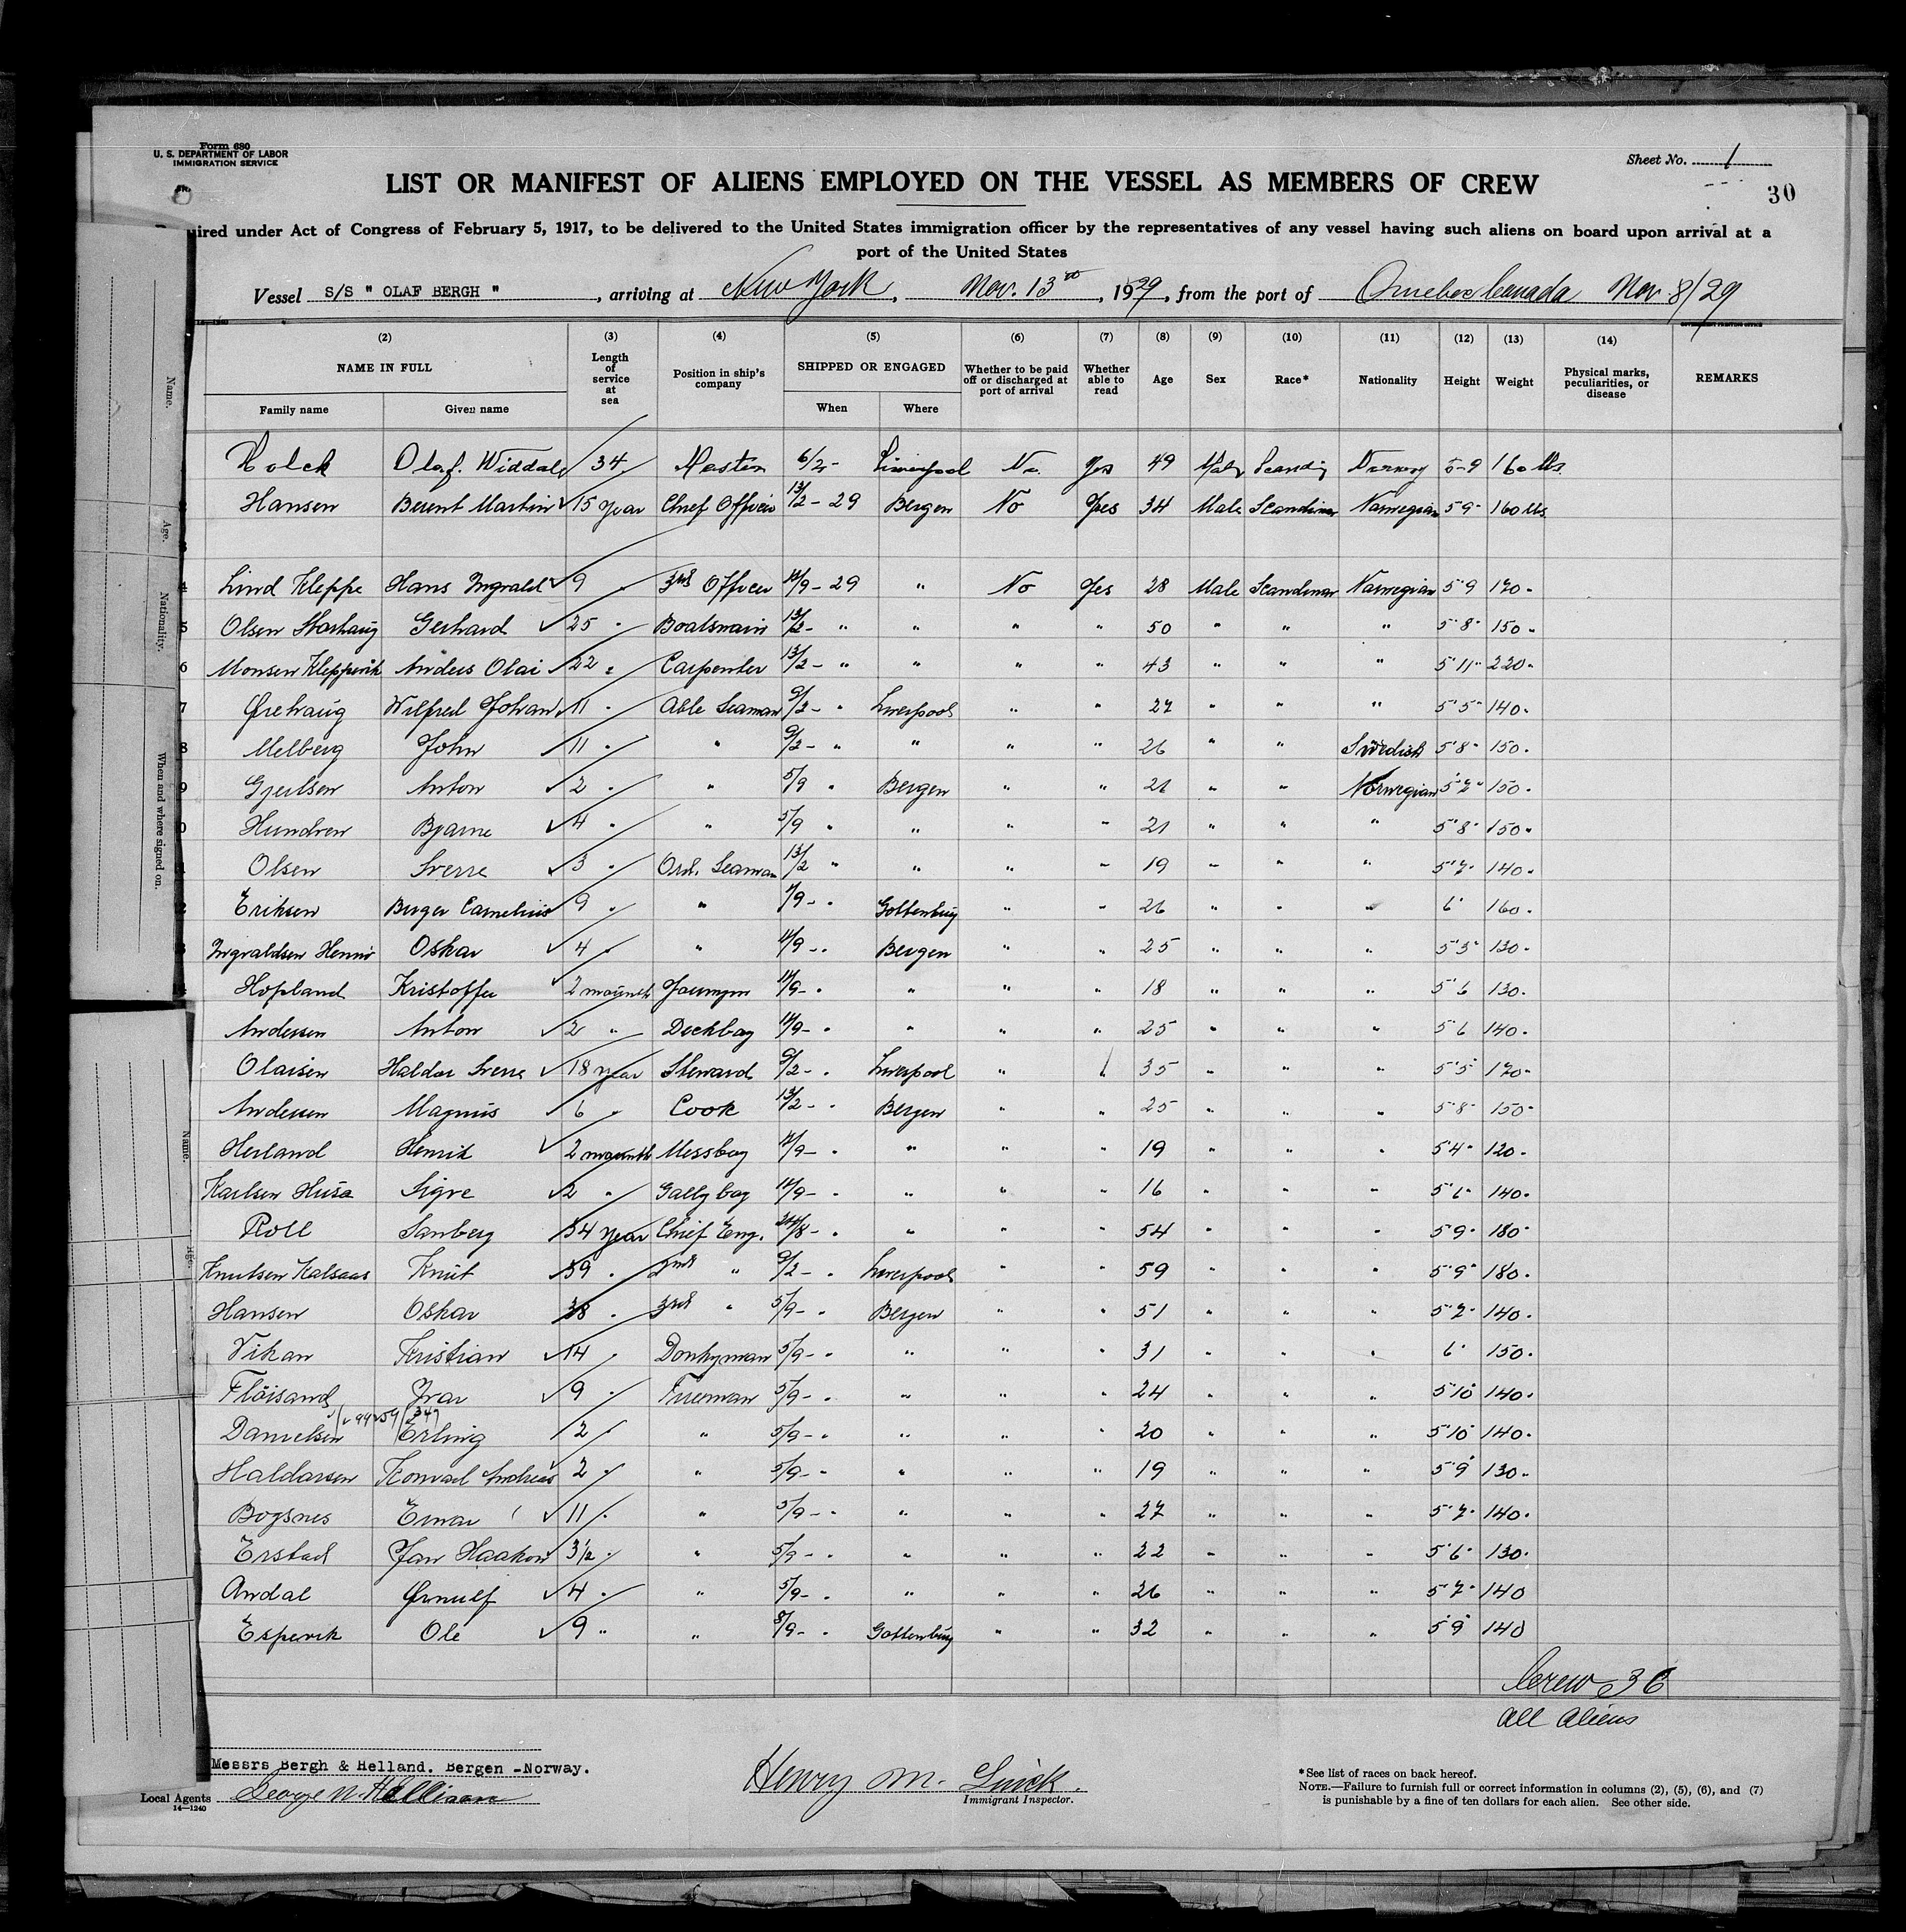 Form 680
U. S. DEPARTMENT OF LABOR
IMMIGRATION SERVICE
Sheet No. 1
30
LIST OR MANIFEST OF ALIENS EMPLOYED ON THE VESSEL AS MEMBERS OF CREW
uired under Act of Congress of February 5, 1917, to be delivered to the United States immigration officer by the representatives of any vessel having such aliens on board upon arrival at a
port of the United States
Vessel S/S " OLAF BERGH " , arriving at New York , Nov. 13th , 1929, from the port of Quebec Canada Nov 8/29
(2) (3) (4) (5) (6) (7) (8) (9) (10) (11) (12) (13) (14)
NAME IN FULL Length of service at sea Position in ship's company SHIPPED OR ENGAGED Whether to be paid off or discharged at port of arrival Whether able to read Age Sex Race* Nationality Height Weight Physical marks, peculiarities, or disease REMARKS
Family name Given name When Where
Olaf. 34 6/2- Liverpool No. Yes 49 Male Scandi 5-9 160 lbs.
Hansen Berent Martin 15 year Chief Officer 13/2 - 29 Bergen No Yes 34 Male Norwegian 5 9 160 lbs.
4 Lind Kleppe Hans Ingvald 9 " 3rd Officer 11/9 - 29 " No Yes 28 Male Norwegian 5 9 170 "
5 Olsen Storhaug Gerhard 25 " Boatswain 13/2 - " " " " 50 " " " 5 8 150 "
6 Monsen Klepperik Anders Olai 22 " Carpenter 13/2 - " " " " 43 " " " 5 11 220 "
7 Wilfred Johan 11 " Able Seaman 9/2 - " Liverpool " " 27 " " " 5 5 140 "
8 Melberg John 11 " " 9/2 - " " " " 26 " " Swedish 5 8 150 "
9 Gjertsen Anton 2 " " 5/9 " Bergen " " 21 " " Norwegian 5 7 150 "
0 Hundven Bjarne 4 " " 5/9 " " " " 21 " " " 5 8 150 "
Olsen Sverre 3 " Ord. Seaman 13/2 " " " " 19 " " " 5 7 140 "
2 Eriksen Birger Cornelius 9 " " 9 - " Gottenburg " " 26 " " " 6 160 "
Ingvaldsen Oskar 4 " " 11/9 - " Bergen " " 25 " " " 5 3 130 "
Hopland Kristoffer 2 11/9 - " " " " 18 " " " 5 6 130 "
Andersen Anton 2 " Deckboy 11/9 - " " " " 25 " " " 5 6 140 "
Olaisen Haldor Sverre 18 year Steward 9/2 - " Liverpool " 35 " " " 5 5 170 "
Andersen Magnus 6 " Cook 13/2 - " Bergen " " 25 " " " 5 8 150 "
Herland Henrik 2 Messboy 11/9 - " " " " 19 " " " 5 4 120 "
Karlsen Husa Sigve 2 " Gallyboy 11/9 - " " " " 16 " " " 5 6 140 "
Roll Sanberg 34 year Chief Eng. 24/8 - " " " " 54 " " " 5 9 180
Knutsen Kalsaas Knut 39 " 2nd " 9/2 - " Liverpool " " 59 " " " 5 9 180 "
Hansen Oskar 38 " 3rd " 5/9 - " Bergen " " 51 " " " 5 7 140 "
Vikan Kristian 14 " Donkyman 5/9 - " " " " 31 " " " 6 150 "
Fløisand Ivar 9 " Fireman 5/9 - " " " " 24 " " " 5 10 140 "
Danielsen Erling 2 " " 5/9 - " " " " 20 " " " 5 10 140 "
Haldorsen Konrad Andreas 2 " " 5/9 - " " " " 19 " " " 5 9 130 "
Bogsnes Einar 11 " " 5/9 - " " " " 27 " " " 5 7 140 "
Erstad Jan Haakon 3½ " " 5/9 - " " " " 22 " " " 5 6 130 "
Andal Ørnulf 4 " " 5/9 - " " " " 26 " " " 5 7 140
Espevik Ole 9 " " 8/9 - " Gottenburg " " 32 " " " 5 9 140
Crew 36
All Aliens
Messrs Bergh & Helland. Bergen -Norway.
Local Agents
14—1240
Henry M.
Immigrant Inspector.
*See list of races on back hereof.
NOTE.—Failure to furnish full or correct information in columns (2), (5), (6), and (7)
is punishable by a fine of ten dollars for each alien. See other side.
Name.
Age.
Nationality.
When and where signed on.
Name.